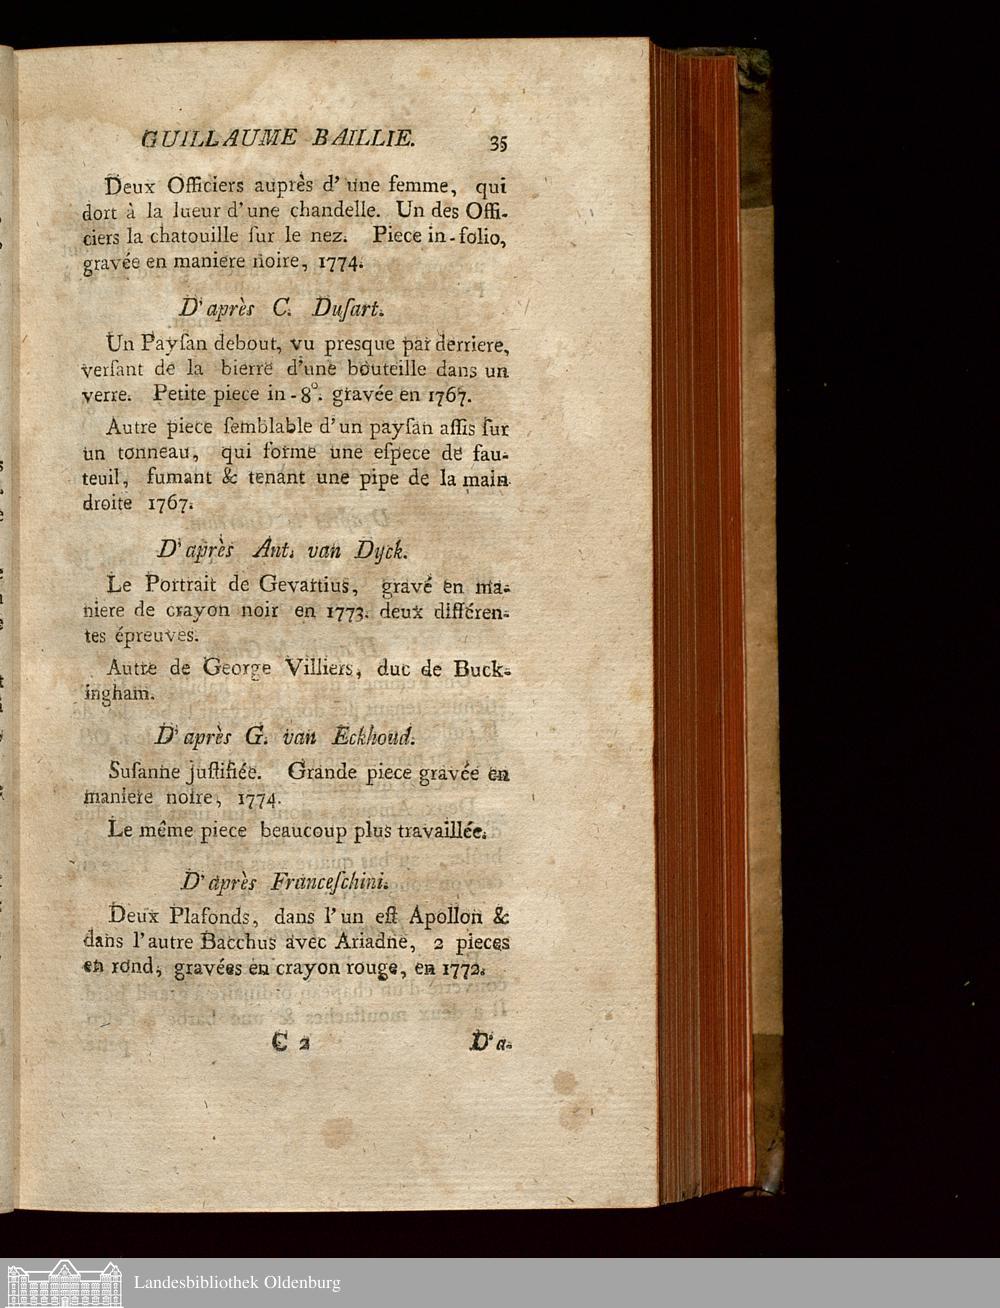 GUILLAUME BAILLIE. 35
Deux Officiers auprès d'une femme, qui
dort à la lueur d'une chandelle. Un des Offi-
ciers la chatouille ſur le nez. Piece in-folio,
gravée en maniere noire, 1774.
D'après C. Duſart.
Un Payſan debout, vu presque par derriere,
verſant de la bierre d'une bouteille dans un
verre. Petite piece in-8°. gravée en 1767.
Autre piece ſemblable d'un payſan aſſis ſur
un tonneau, qui forme une eſpece de fau-
teuil, fumant & tenant une pipe de la main
droite 1767.
D'après Ant. van Dyck.
Le Portrait de Gevartius, gravé en ma-
niere de crayon noir en 1773. deux différen-
tes épreuves.
Autre de George Villiers, duc de Buck-
ingham.
D'après G. van Eckhoud.
Suſanne juſtifiée. Grande piece gravée en
maniere noire, 1774.
Le même piece beaucoup plus travaillée.
D'après Franceſchini.
Deux Plafonds, dans l'un eſt Apollon &
dans l'autre Bacchus avec Ariadne, 2 pieces
en rond, gravées en crayon rouge, en 1772.
C 2 D'a-
Landesbibliothek Oldenburg